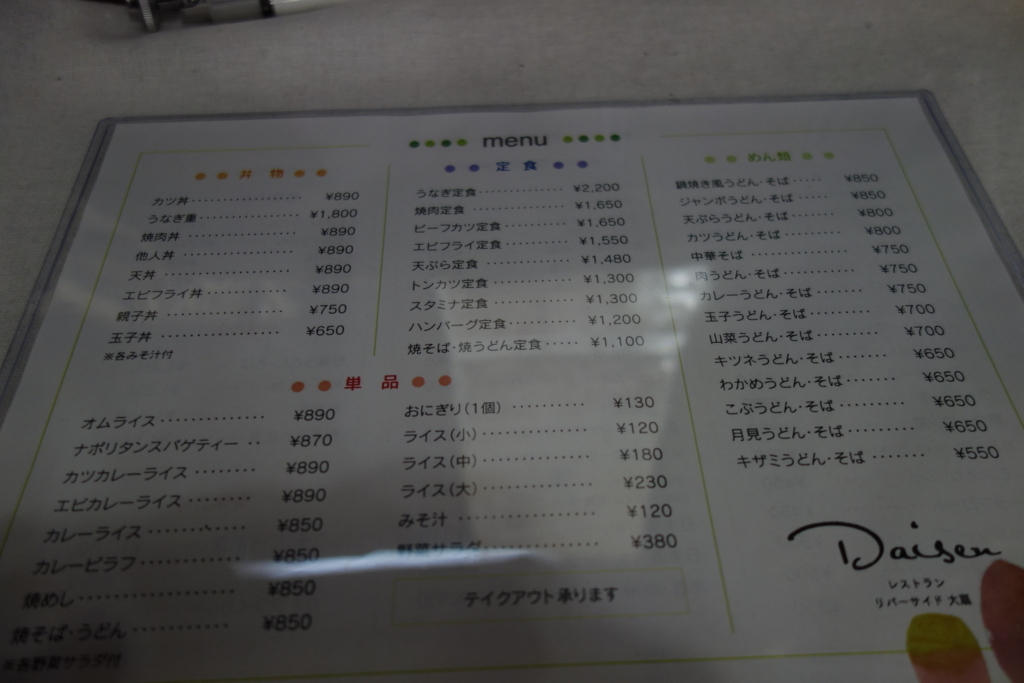 menu
丼 物
カツ丼 ¥890
うなぎ重 ¥1,800
焼肉丼 ¥890
他人丼 ¥890
天丼 ¥890
エビフライ丼 ¥890
親子丼 ¥750
玉子丼 ¥650
※各みそ汁付
定 食
うなぎ定食 ¥2,200
焼肉定食 ¥1,650
ビーフカツ定食 ¥1,650
エビフライ定食 ¥1,550
天ぷら定食 ¥1,480
トンカツ定食 ¥1,300
スタミナ定食 ¥1,300
ハンバーグ定食 ¥1,200
焼そば・焼うどん定食 ¥1,100
めん類
鍋焼き風うどん・そば ¥850
ジャンボうどん・そば ¥850
天ぷらうどん・そば ¥800
カツうどん・そば ¥800
中華そば ¥750
肉うどん・そば ¥750
カレーうどん・そば ¥750
玉子うどん・そば ¥700
山菜うどん・そば ¥700
キツネうどん・そば ¥650
わかめうどん・そば ¥650
こぶうどん・そば ¥650
月見うどん・そば ¥650
キザミうどん・そば ¥550
単 品
オムライス ¥890
ナポリタンスパゲティー ¥870
カツカレーライス ¥890
エビカレーライス ¥890
カレーライス ¥850
カレーピラフ ¥850
焼めし ¥850
焼そば・うどん ¥850
※各野菜サラダ付
おにぎり(1個) ¥130
ライス(小) ¥120
ライス(中) ¥180
ライス(大) ¥230
みそ汁 ¥120
野菜サラダ ¥380
テイクアウト承ります
Daisen
レストラン
リバーサイド 大扇